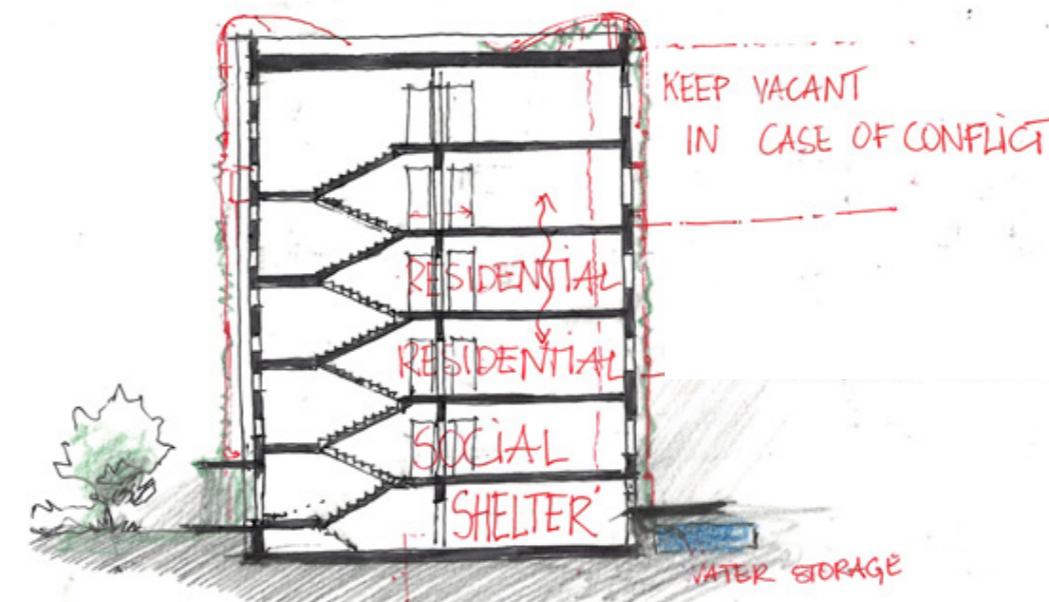 KEEP VACANT
IN CASE OF CONFLICT
RESIDENTIAL
RESIDENTIAL
SOCIAL
SHELTER'
WATER STORAGE